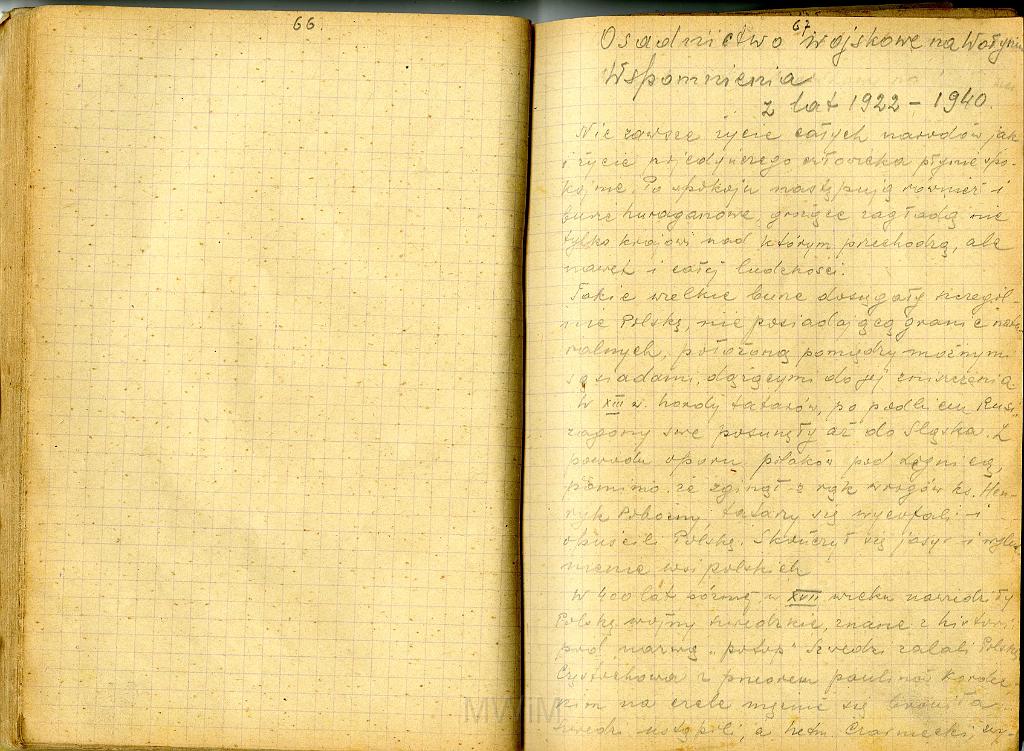 66.
67
Osadnictwo wojskowe na Wołyniu
Wspomnienia
z lat 1922 – 1940.
Nie zawsze życie całych narodów jak
i życie pojedynczego człowieka płynie spo-
kojnie. Po spokoju następują również i
burze huraganowe, grożące zagładą nie
tylko krajowi nad którym przechodzą, ale
nawet i całej ludzkości.
Takie wielkie burze dosięgały szczegól-
nie Polskę, nie posiadającą granic natu-
ralnych, położoną pomiędzy możnymi
sąsiadami, dążącymi do jej zniszczenia.
W XIII w. hordy tatarów, po podbiciu Rusi,
zagony swe posunęły aż do Śląska. Z
powodu oporu polaków pod Lignicą,
pomimo że zginął z rąk wrogów ks. Hen-
ryk Pobożny, tatarzy się wycofali i
opuścili Polskę. Skończył się jasyr i
wsi polskich
W 400 lat później w XVII wieku nawiedziły
Polskę wojny szwedzkie, znane z historii
pod nazwą "potop" Szwedzi zalali Polskę
Częstochowa z przeorem paulinów Kordec-
kim na czele mężnie się broniła
Szwedzi ustąpili, a hetm. Czarniecki,
MWiM